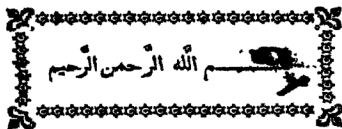 بسم الله الرَّحمن الرَّحيم